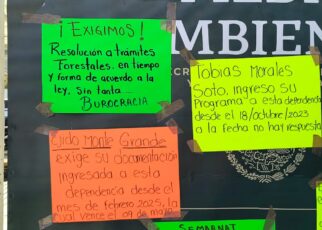 MEDI
AMBIEN
¡EXIGIMOS!
Resolución a trámites
Forestales. en tiempo
y forma de acuerdo a la
ley, Sin tanta...
BUROCRACIA
Tobias Morales
Soto, ingreso su
Programa a esta dependencia
desde el 18/octubre/2023
a la fecha no hay respuesta
Ejido Monte Grande
exige su documentación
ingresada a esta
dependencia desde el
mes de febrero 2025, la
cual vence el 09 de mayo
SEMARNAT